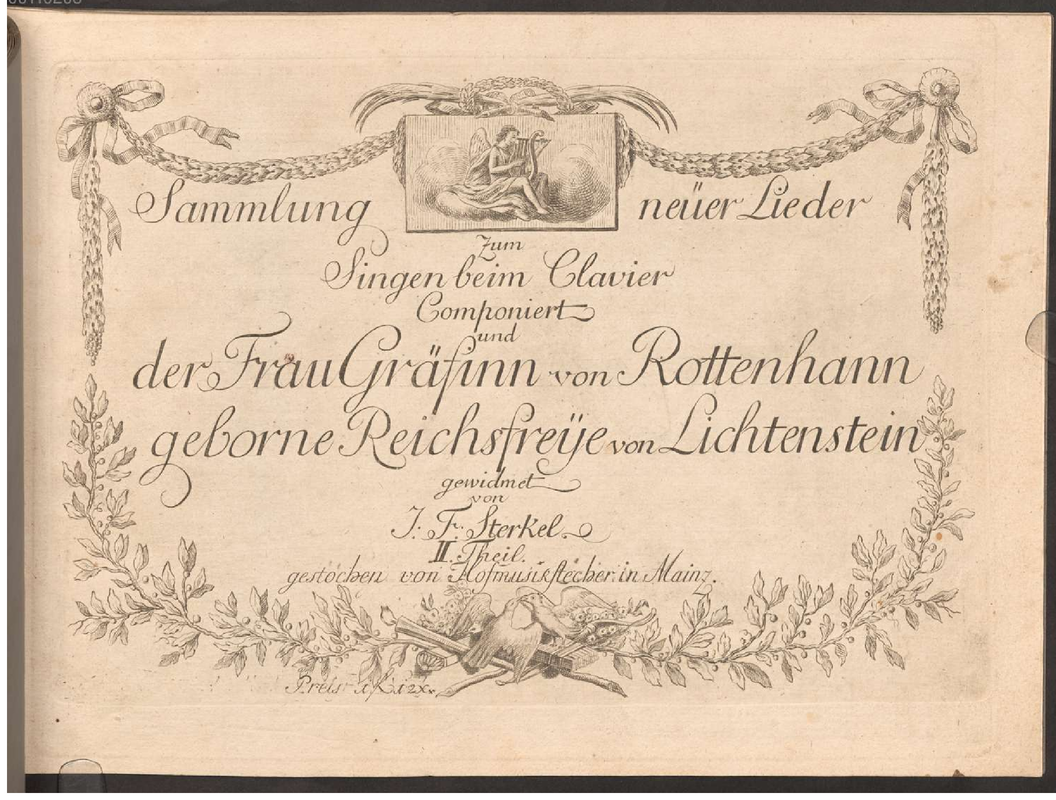 Sammlung neüer Lieder
Zum
Singen beim Clavier
Componiert
und
der Frau Gräfinn von Rottenhann
geborne Reichsfreÿe von Lichtenstein
gewidmet
von
J. F. Sterkel.
II. Theil.
gestochen von Hofmusikstecher in Mainz.
Preis 1 f 12 x.